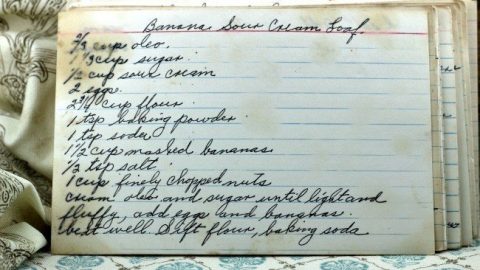 Banana Sour Cream Loaf
2/3 cup oleo.
1 1/3 cup sugar.
1/2 cup sour cream
2 eggs.
2 3/4 cup flour.
1 tsp baking powder.
1 tsp soda
1 1/2 cup mashed bananas
1/2 tsp salt.
1 cup finely chopped nuts
cream oleo and sugar until light and
fluffy, add eggs and bananas.
beat well. Sift flour, baking soda